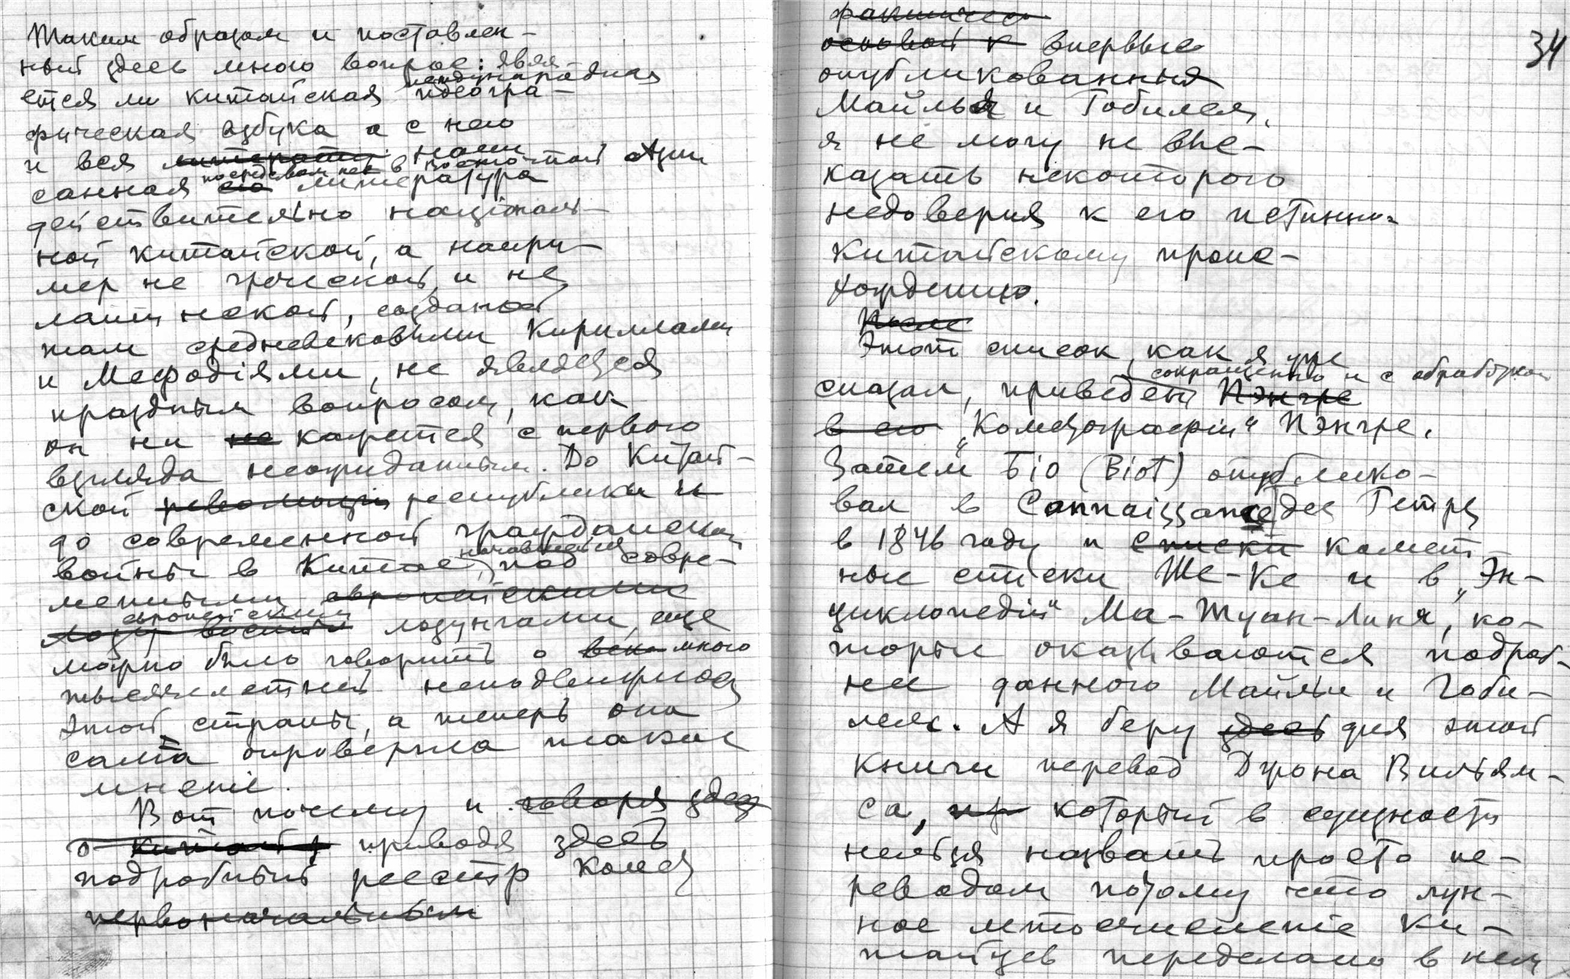 Таким образом и поставлен-
ный здесь мною вопрос: явля-
ется ли китайская международная идеогра-
фическая азбука а с нею
и вся нами
санная посредством нея в восточной Азии литература
действительно националь-
ной китайской, а напри-
мер не греческой и не
латинской, созданной
там средневековыми Кириллами
и Мефодіями, не является
праздным вопросом, как
он ни не кажется с первого
взгляда неожиданным. До Китай-
ской революціи республики и
до современной гражданской
войны в Китае, начавшейся под совре-
менными европейскими
европейскими лозунгами, еще
можно было говорить о много
тысячелетней неподвижности
этой страны, а теперь она
сама опровергла такое
мненіе.
Вот почему и говоря здесь
о приводя здесь
подробный реестр комет
первоначальным
фактически
основой к впервые
опубликованный
Майлья и Гобилем,
я не могу не выс-
казать некоторого
недоверия к его истинно-
китайскому проис-
хождению.
После
Этот список, как я уже
сказал, приведен сокращенно и с обработкой Пэнгре
в его „Кометографіи" Пэнгре.
Затем Біо (Biot) опублико-
вал в Connaissance des Temps
в 1846 году и списки комет
ные списки Ше-Ке и в „Эн-
циклопедіи" Ма-Туан-Линя, ко-
торые оказываются подроб-
нее данного Майльи и Гоби-
лем. А я беру здесь для этой
книги перевод Джона Вильям-
са, пр который в сущности
нельзя назвать просто пе-
реводом потому что лун-
ное летосчисление Ки-
тайцев переделано в нем
34